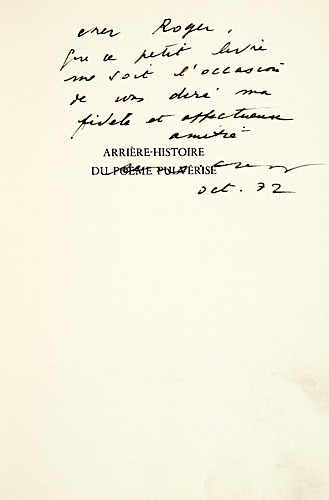 cher Roger,
que ce petit livre
me soit l'occasion
de vous dire ma
fidèle et affectueuse
amitié
ARRIÈRE-HISTOIRE
DU POÈME PULVÉRISÉ
oct. 72